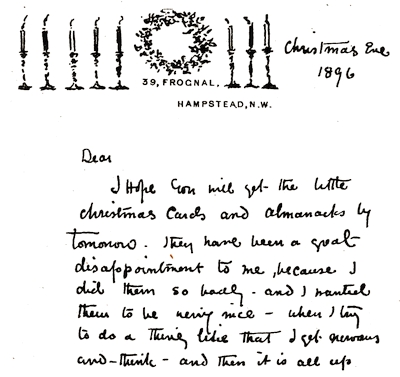 Christmas Eve
1896
39, FROGNAL.
HAMPSTEAD, N.W.
Dear
I Hope you will get the little
christmas Cards and almanacks by
tomorow. They have been a great
disappointment to me, because I
did them so badly - and I wanted
them to be very nice - when I try
to do a thing like that I get nervous
and - think - and then it is all up